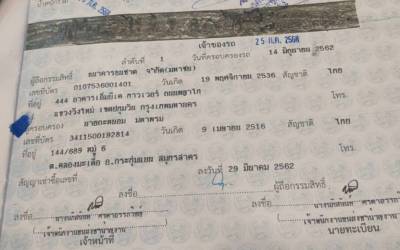 25 ก.ค. 2568
เจ้าของรถ
ลำดับที่ 1 วันที่ครอบครองรถ 14 มิถุนายน 2562
ผู้ถือกรรมสิทธิ์ ธนาคารธนชาต จำกัด(มหาชน)
เลขที่บัตร 0107536001401 วันเกิด 19 พฤศจิกายน 2536 สัญชาติ ไทย
ที่อยู่ 444 อาคารเอ็มบีเค ทาวเวอร์ ถนนพญาไท
แขวงวังใหม่ เขตปทุมวัน กรุงเทพมหานคร โทร.
ผู้ครอบครอง มหาพรม
เลขที่บัตร 3411500192814 วันเกิด 9 เมษายน 2516 สัญชาติ ไทย
ที่อยู่ 144/689 หมู่ 6
ต.คลองมะเดื่อ อ.กระทุ่มแบน สมุทรสาคร โทร.
สัญญาเช่าซื้อเลขที่ ลงวันที่ 29 มีนาคม 2562
ลงชื่อ ผู้ถือกรรมสิทธิ์
ลงชื่อ ลงชื่อ
เจ้าหน้าที่ นายทะเบียน